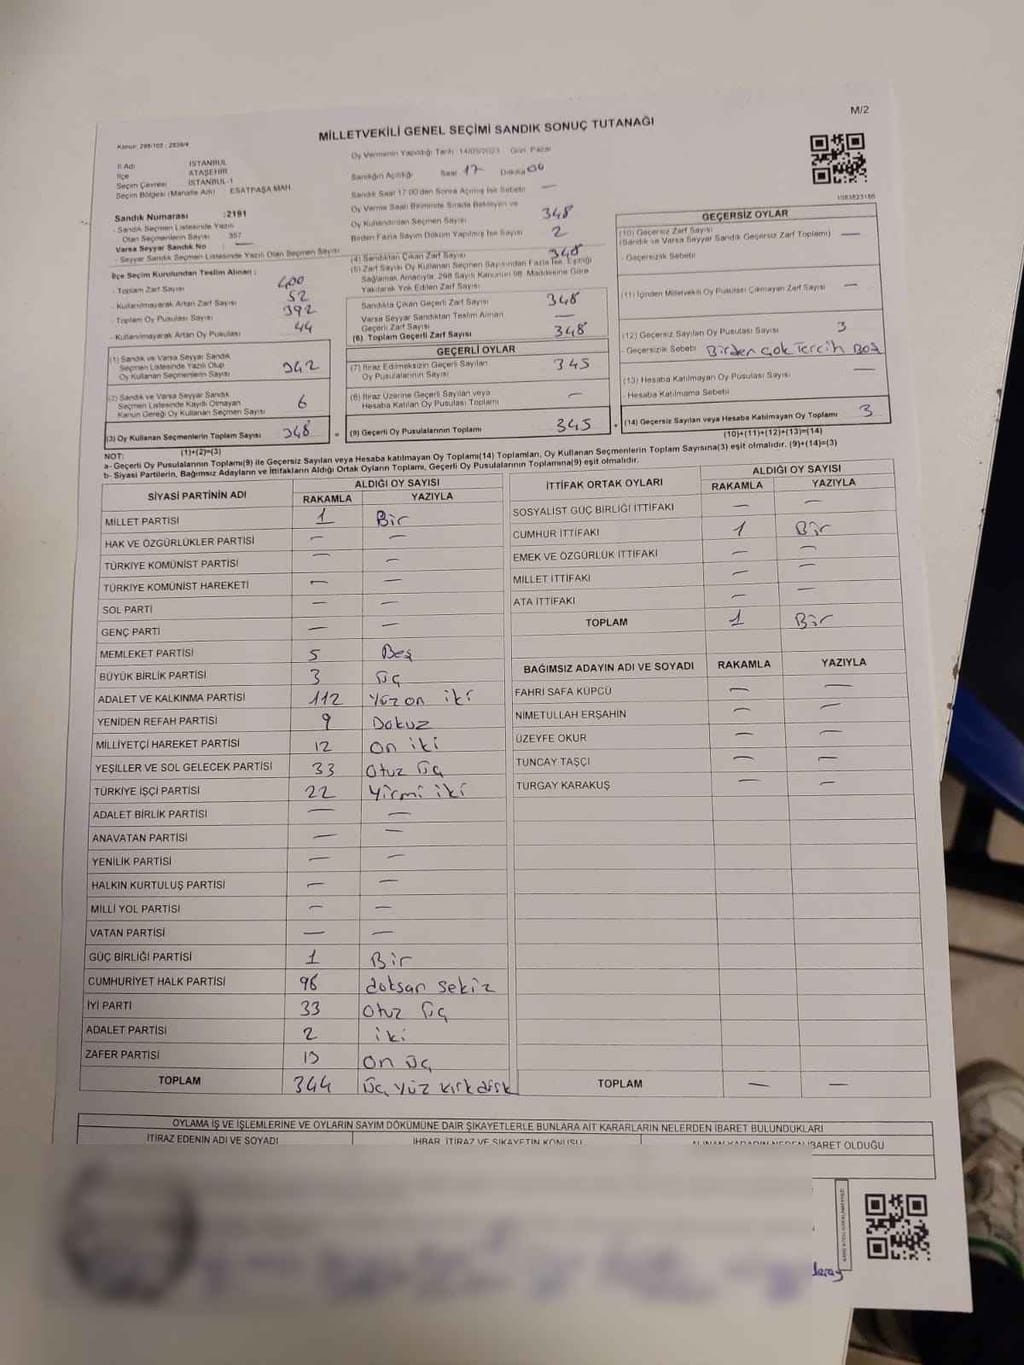 M/2
MİLLETVEKİLİ GENEL SEÇİMİ SANDIK SONUÇ TUTANAĞI
Oy Vermenin Yapıldığı Tarih: 14/05/2023 Gün: Pazar
İl Adı İSTANBUL
İlçe ATAŞEHİR
Seçim Çevresi İSTANBUL-1
Seçim Bölgesi (Mahalle Adı) ESATPAŞA MAH.
Sandığın Açıldığı Saat 17 Dakika 00
Sandık Saat 17.00'den Sonra Açılmış İse Sebebi —
Sandık Numarası :2191
- Sandık Seçmen Listesinde Yazılı
Olan Seçmenlerin Sayısı 357
Varsa Seyyar Sandık No —
- Seyyar Sandık Seçmen Listesinde Yazılı Olan Seçmen Sayısı
Oy Kullandıran Seçmen Sayısı 348
Birden Fazla Sayım Döküm Yapılmış İse Sayısı 2
İlçe Seçim Kurulundan Teslim Alınan:
- Toplam Zarf Sayısı 400
- Kullanılmayarak Artan Zarf Sayısı 52
- Toplam Oy Pusulası Sayısı 392
- Kullanılmayarak Artan Oy Pusulası 44
(1) Sandık ve Varsa Seyyar Sandık
Seçmen Listesinde Yazılı Olup
Oy Kullanan Seçmenlerin Sayısı 342
(2) Sandık ve Varsa Seyyar Sandık
Seçmen Listesinde Kaydı Olmayan
Kanun Gereği Oy Kullanan Seçmen Sayısı 6
(3) Oy Kullanan Seçmenlerin Toplam Sayısı 348
(1)+(2)=(3)
(4) Sandıktan Çıkan Zarf Sayısı 348
(5) Zarf Sayısı Oy Kullanan Seçmen Sayısından Fazla İse, Eşitliği
Sağlamak Amacıyla, 298 Sayılı Kanunun 98. Maddesine Göre
Yakılarak Yok Edilen Zarf Sayısı
Sandıkta Çıkan Geçerli Zarf Sayısı 348
Varsa Seyyar Sandıktan Teslim Alınan
Geçerli Zarf Sayısı —
(6) Toplam Geçerli Zarf Sayısı 348
GEÇERLİ OYLAR
(7) İtiraz Edilmeksizin Geçerli Sayılan
Oy Pusulalarının Sayısı 345
(8) İtiraz Üzerine Geçerli Sayılan veya
Hesaba Katılan Oy Pusulası Toplamı —
= (9) Geçerli Oy Pusulalarının Toplamı 345
GEÇERSİZ OYLAR
(10) Geçersiz Zarf Sayısı —
(Sandık ve Varsa Seyyar Sandık Geçersiz Zarf Toplamı)
- Geçersizlik Sebebi
(11) İçinden Milletvekili Oy Pusulası Çıkmayan Zarf Sayısı —
(12) Geçersiz Sayılan Oy Pusulası Sayısı 3
- Geçersizlik Sebebi Birden çok Tercih Boş
(13) Hesaba Katılmayan Oy Pusulası Sayısı —
- Hesaba Katılmama Sebebi
+ (14) Geçersiz Sayılan veya Hesaba Katılmayan Oy Toplamı 3
(10)+(11)+(12)+(13)=(14)
NOT:
a- Geçerli Oy Pusulalarının Toplamı(9) ile Geçersiz Sayılan veya Hesaba katılmayan Oy Toplamı(14) Toplamları, Oy Kullanan Seçmenlerin Toplam Sayısına(3) eşit olmalıdır. (9)+(14)=(3)
b- Siyasi Partilerin, Bağımsız Adayların ve İttifakların Aldığı Ortak Oyların Toplamı, Geçerli Oy Pusulalarının Toplamına(9) eşit olmalıdır.
SİYASİ PARTİNİN ADI ALDIĞI OY SAYISI
RAKAMLA YAZIYLA
MİLLET PARTİSİ 1 Bir
HAK VE ÖZGÜRLÜKLER PARTİSİ — —
TÜRKİYE KOMÜNİST PARTİSİ — —
TÜRKİYE KOMÜNİST HAREKETİ — —
SOL PARTİ — —
GENÇ PARTİ — —
MEMLEKET PARTİSİ 5 Beş
BÜYÜK BİRLİK PARTİSİ 3 Üç
ADALET VE KALKINMA PARTİSİ 112 Yüz on iki
YENİDEN REFAH PARTİSİ 9 Dokuz
MİLLİYETÇİ HAREKET PARTİSİ 12 On iki
YEŞİLLER VE SOL GELECEK PARTİSİ 33 Otuz Üç
TÜRKİYE İŞÇİ PARTİSİ 22 Yirmi iki
ADALET BİRLİK PARTİSİ — —
ANAVATAN PARTİSİ — —
YENİLİK PARTİSİ — —
HALKIN KURTULUŞ PARTİSİ — —
MİLLİ YOL PARTİSİ — —
VATAN PARTİSİ — —
GÜÇ BİRLİĞİ PARTİSİ 1 Bir
CUMHURİYET HALK PARTİSİ 98 doksan sekiz
İYİ PARTİ 33 Otuz Üç
ADALET PARTİSİ 2 iki
ZAFER PARTİSİ 13 On Üç
TOPLAM 344 Üç Yüz kırk dört
İTTİFAK ORTAK OYLARI ALDIĞI OY SAYISI
RAKAMLA YAZIYLA
SOSYALİST GÜÇ BİRLİĞİ İTTİFAKI — —
CUMHUR İTTİFAKI 1 Bir
EMEK VE ÖZGÜRLÜK İTTİFAKI — —
MİLLET İTTİFAKI — —
ATA İTTİFAKI — —
TOPLAM 1 Bir
BAĞIMSIZ ADAYIN ADI VE SOYADI RAKAMLA YAZIYLA
FAHRİ SAFA KÜPCÜ — —
NİMETULLAH ERŞAHİN — —
ÜZEYFE OKUR — —
TUNCAY TAŞÇI — —
TURGAY KARAKUŞ — —
TOPLAM — —
OYLAMA İŞ VE İŞLEMLERİNE VE OYLARIN SAYIM DÖKÜMÜNE DAİR ŞİKAYETLERLE BUNLARA AİT KARARLARIN NELERDEN İBARET BULUNDUKLARI
İTİRAZ EDENİN ADI VE SOYADI İHBAR, İTİRAZ VE ŞİKAYETİN KONUSU ALINAN KARARIN NEDEN İBARET OLDUĞU